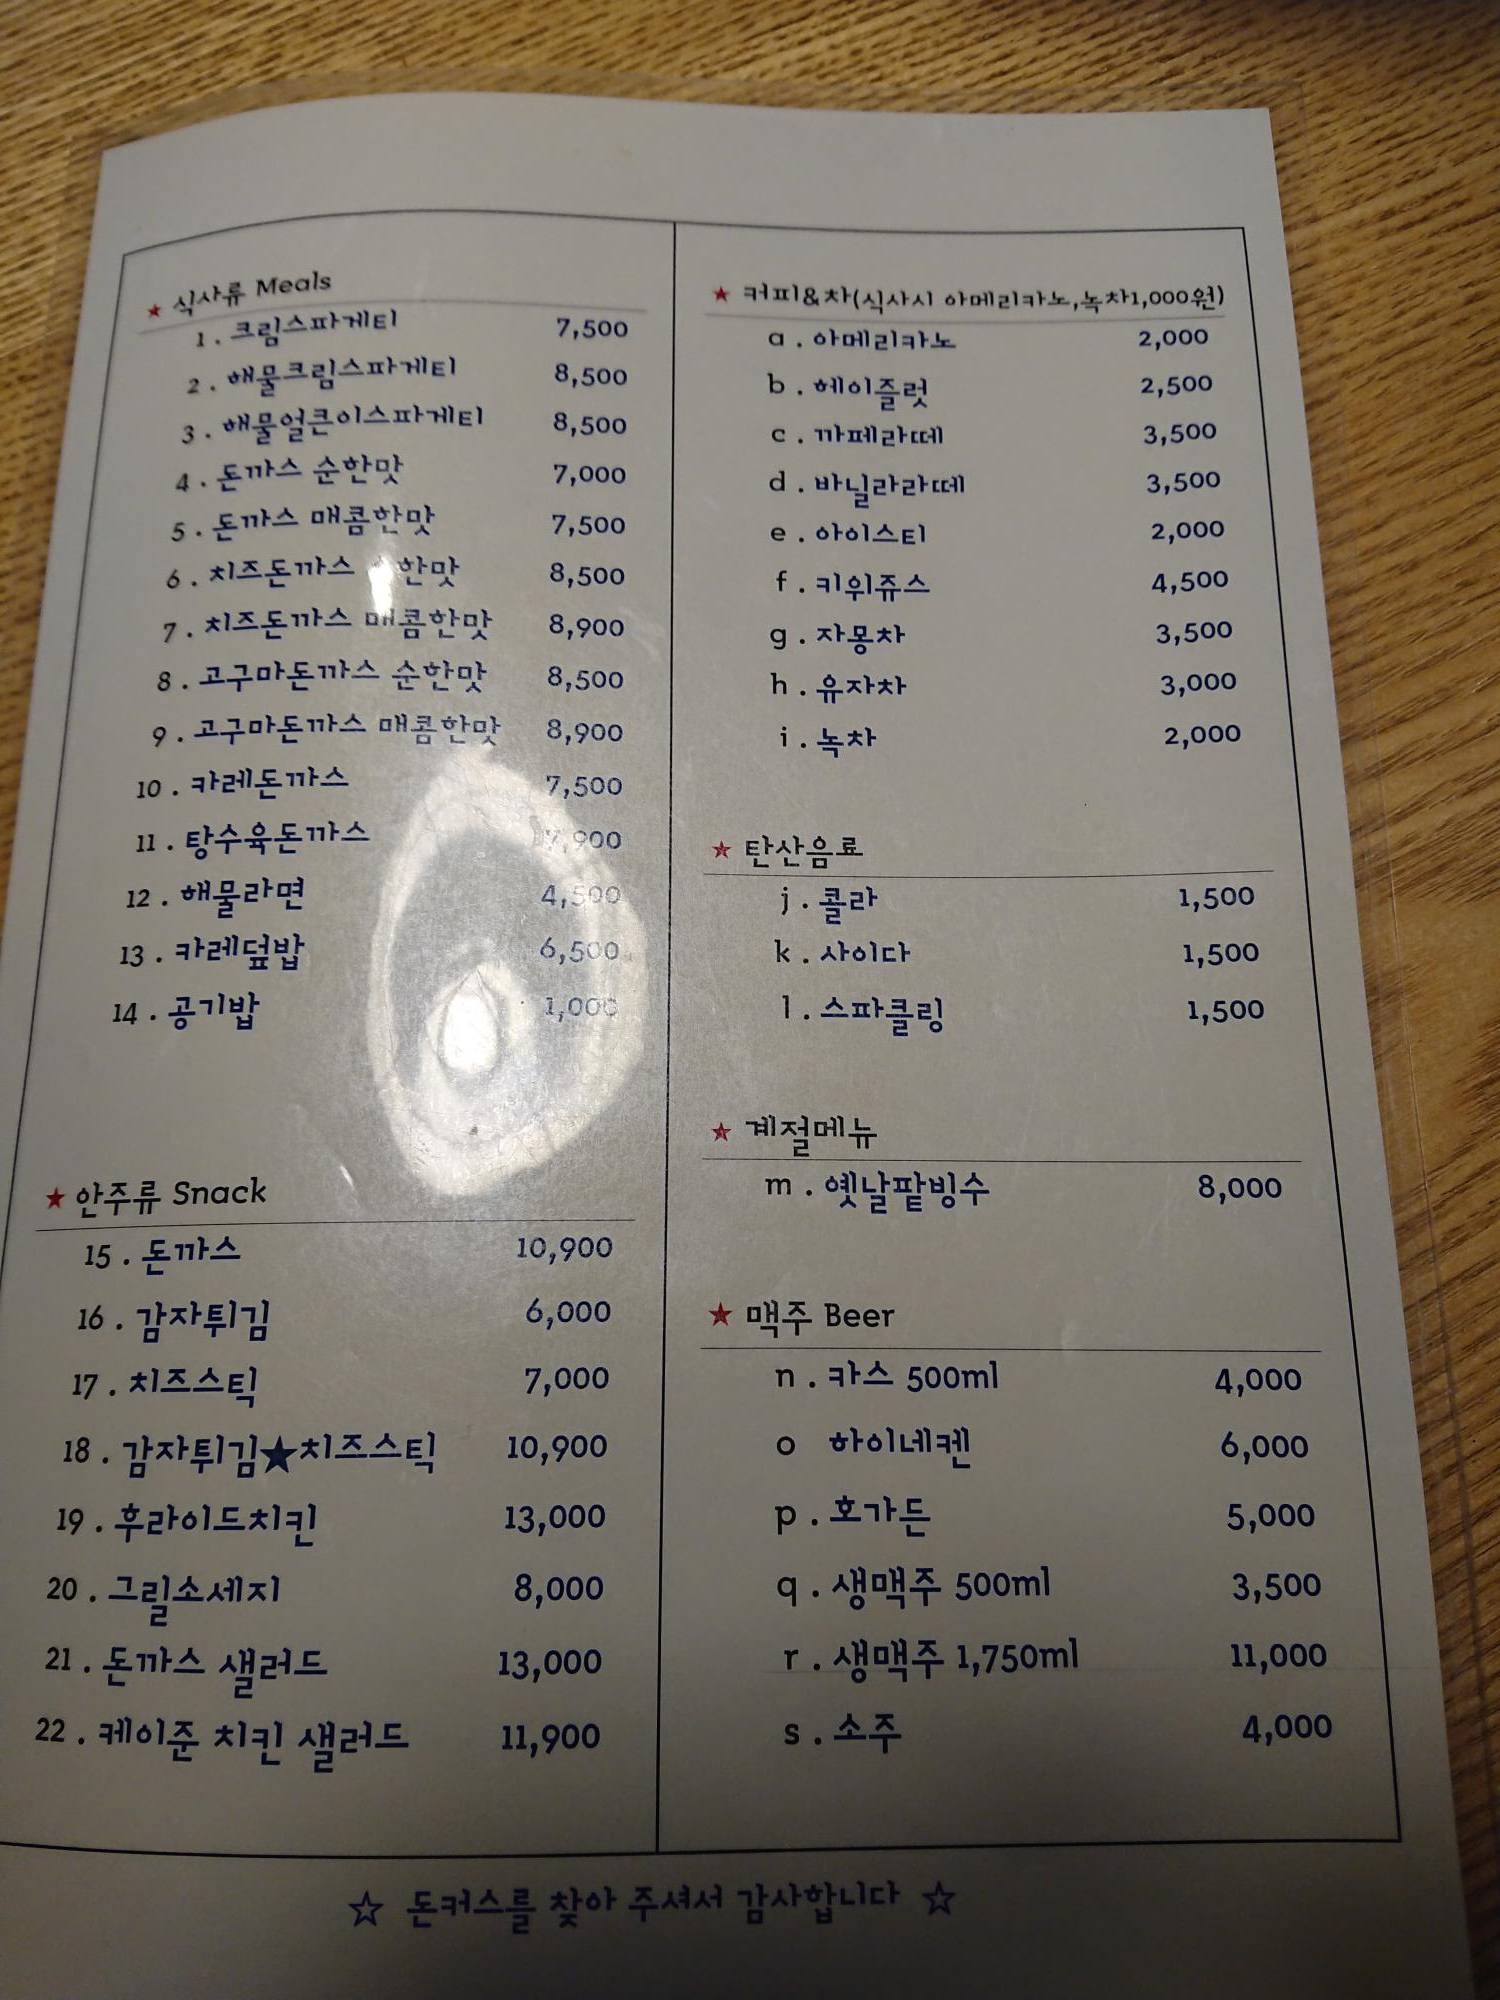 ★ 식사류 Meals
1. 크림스파게티 7,500
2. 해물크림스파게티 8,500
3. 해물얼큰이스파게티 8,500
4. 돈까스 순한맛 7,000
5. 돈까스 매콤한맛 7,500
6. 치즈돈까스 한맛 8,500
7. 치즈돈까스 매콤한맛 8,900
8. 고구마돈까스 순한맛 8,500
9. 고구마돈까스 매콤한맛 8,900
10. 카레돈까스 7,500
11. 탕수육돈까스
12. 해물라면 4,500
13. 카레덮밥 6,500
14. 공기밥 1,000
★ 안주류 Snack
15. 돈까스 10,900
16. 감자튀김 6,000
17. 치즈스틱 7,000
18. 감자튀김★치즈스틱 10,900
19. 후라이드치킨 13,000
20. 그릴소세지 8,000
21. 돈까스 샐러드 13,000
22. 케이준 치킨 샐러드 11,900
★ 커피&차(식사시 아메리카노,녹차1,000원)
a. 아메리카노 2,000
b. 헤이즐럿 2,500
c. 까페라떼 3,500
d. 바닐라라떼 3,500
e. 아이스티 2,000
f. 키위쥬스 4,500
g. 자몽차 3,500
h. 유자차 3,000
i. 녹차 2,000
★ 탄산음료
j. 콜라 1,500
k. 사이다 1,500
l. 스파클링 1,500
★ 계절메뉴
m. 옛날팥빙수 8,000
★ 맥주 Beer
n. 카스 500ml 4,000
o 하이네켄 6,000
p. 호가든 5,000
q. 생맥주 500ml 3,500
r. 생맥주 1,750ml 11,000
s. 소주 4,000
☆ 돈커스를 찾아 주셔서 감사합니다 ☆